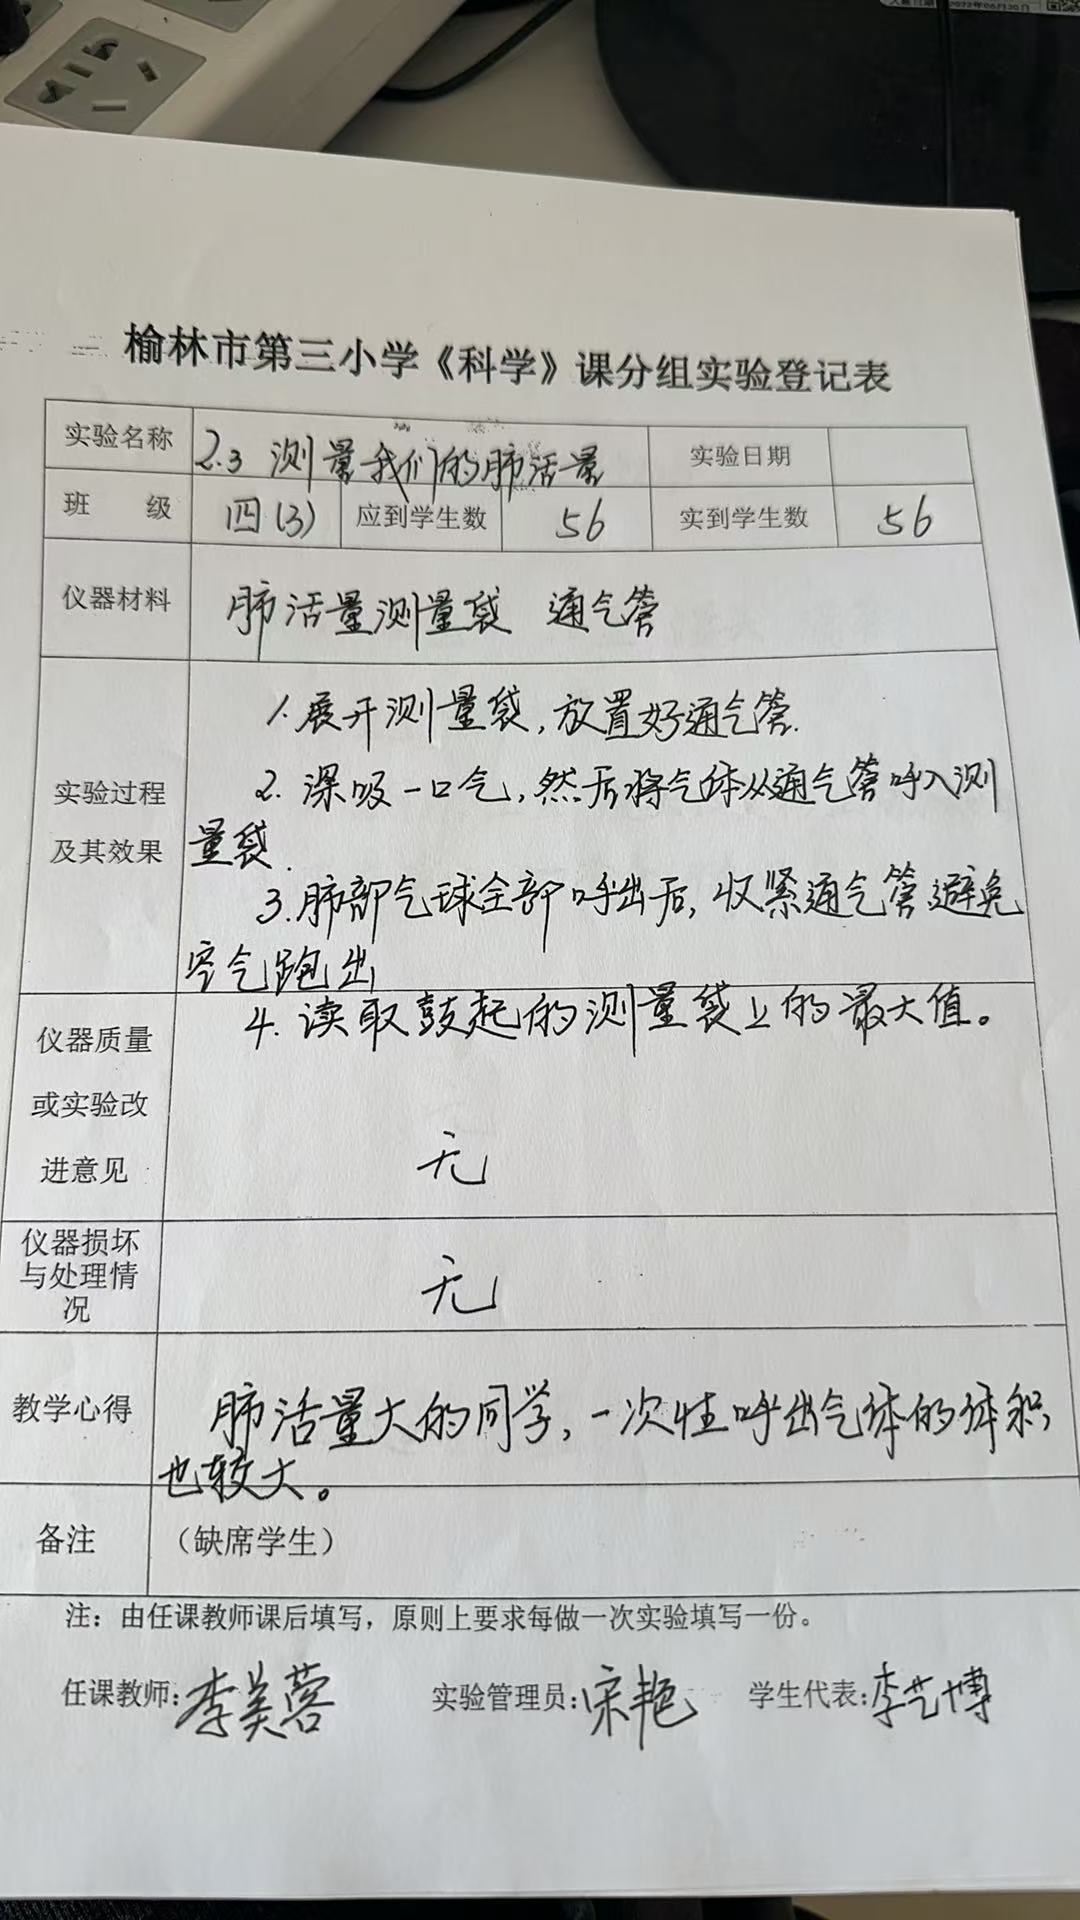 2022年06月20日
榆林市第三小学《科学》课分组实验登记表
实验名称 2.3 测量我们的肺活量 实验日期
班 级 四(3) 应到学生数 56 实到学生数 56
仪器材料 肺活量测量袋 通气管
实验过程
及其效果
1.展开测量袋,放置好通气管.
2.深吸一口气,然后将气体从通气管呼入测
量袋.
3.肺部气球全部呼出后,收紧通气管避免
空气跑出
4.读取鼓起的测量袋上的最大值。
仪器质量
或实验改
进意见
无
仪器损坏
与处理情
况
无
教学心得 肺活量大的同学,一次性呼出气体的体积
也较大。
备注 (缺席学生)
注:由任课教师课后填写,原则上要求每做一次实验填写一份。
任课教师:李美蓉 实验管理员:宋艳 学生代表:李艺博